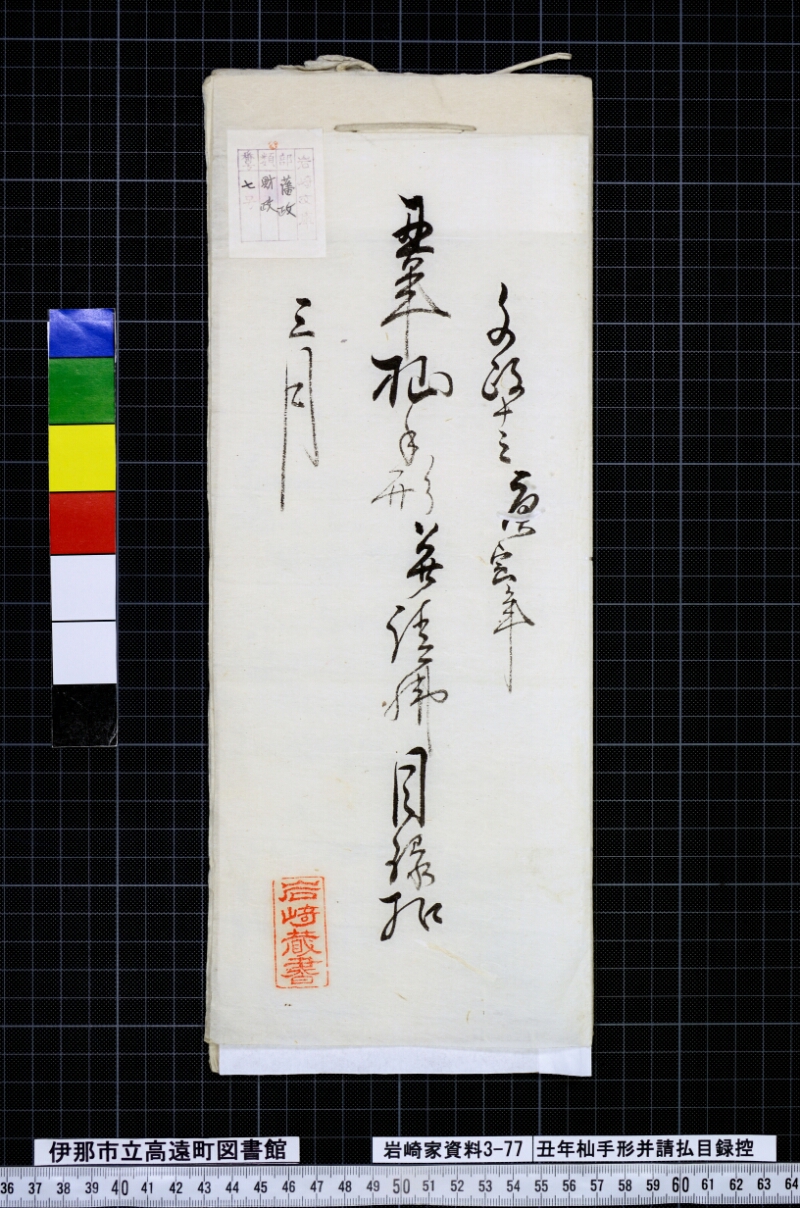 文政十三庚寅年
丑年杣手形并請払目録扣
三月
部 藩政
類 財政
岩﨑蔵書
伊那市立高遠町図書館
岩崎家資料3-77
丑年杣手形并請払目録控
36 37 38 39 40 41 42 43 44 45 46 47 48 49 50 51 52 53 54 55 56 57 58 59 60 61 62 63 64